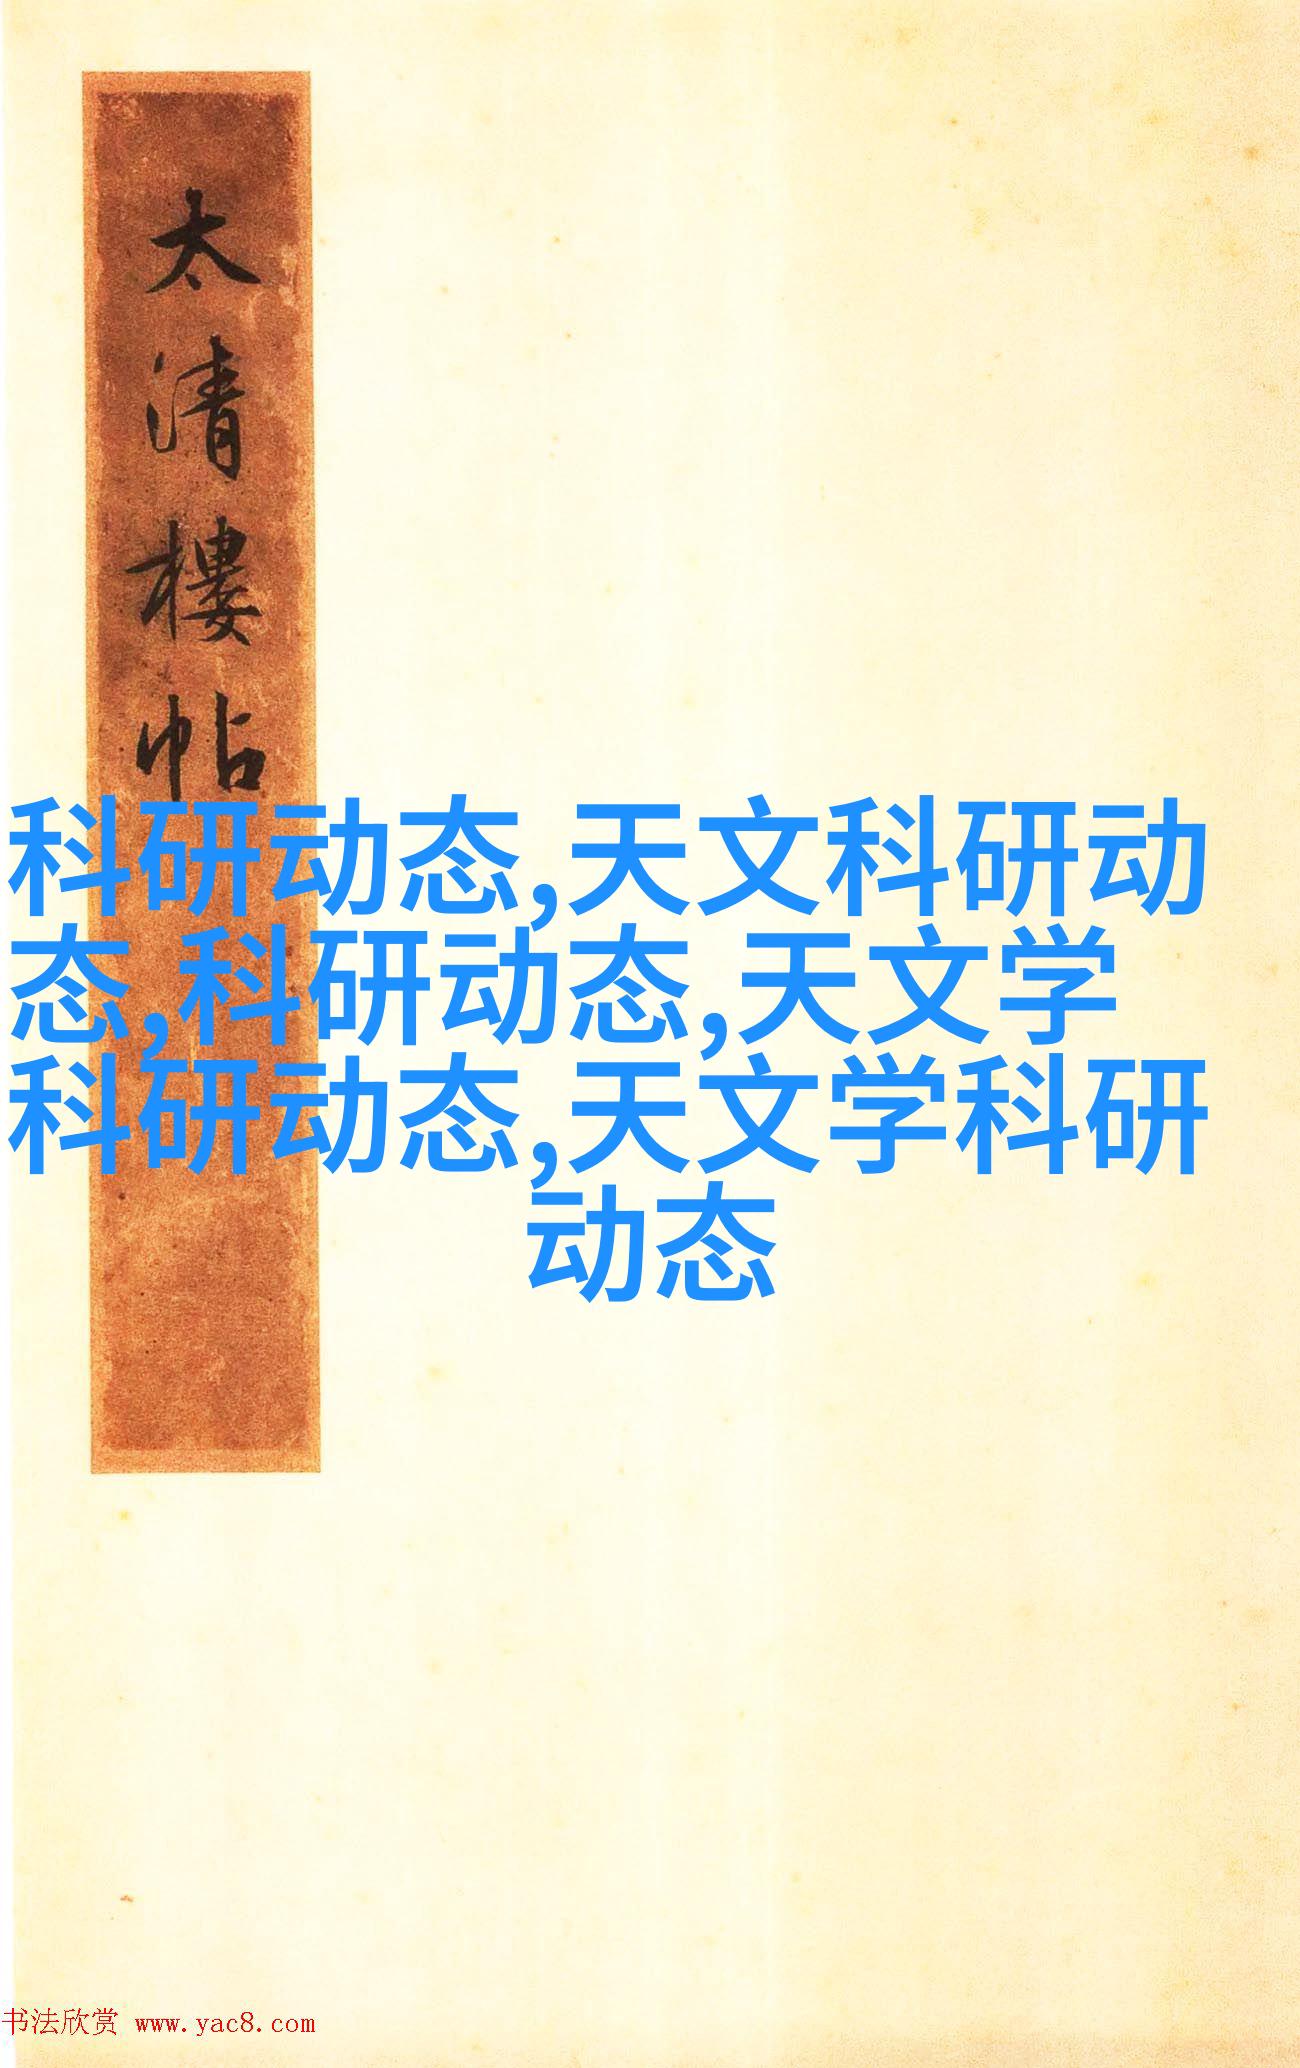 太清樓帖
科研动态,天文科研动
态,科研动态,天文学
科研动态,天文学科研
动态
书法欣赏 www.yac8.com